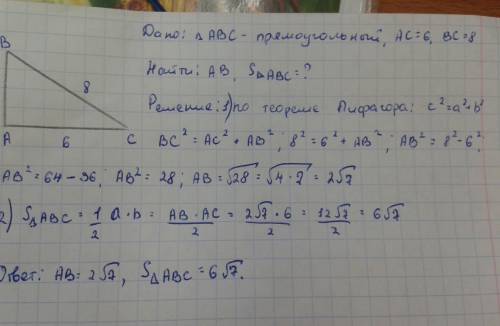 Дано: △ABC - прямоугольный, AC=6, BC=8
Найти: AB, S△ABC=?
Решение: 1) по теореме Пифагора: c²=a²+b²
BC²=AC²+AB²; 8²=6²+AB²; AB²=8²-6²;
AB²=64-36; AB²=28; AB=√28=√4·7=2√7
2) S△ABC=1/2 a·b=AB·AC/2=2√7·6/2=12√7/2=6√7
Ответ: AB=2√7, S△ABC=6√7.
B
8
A
6
C